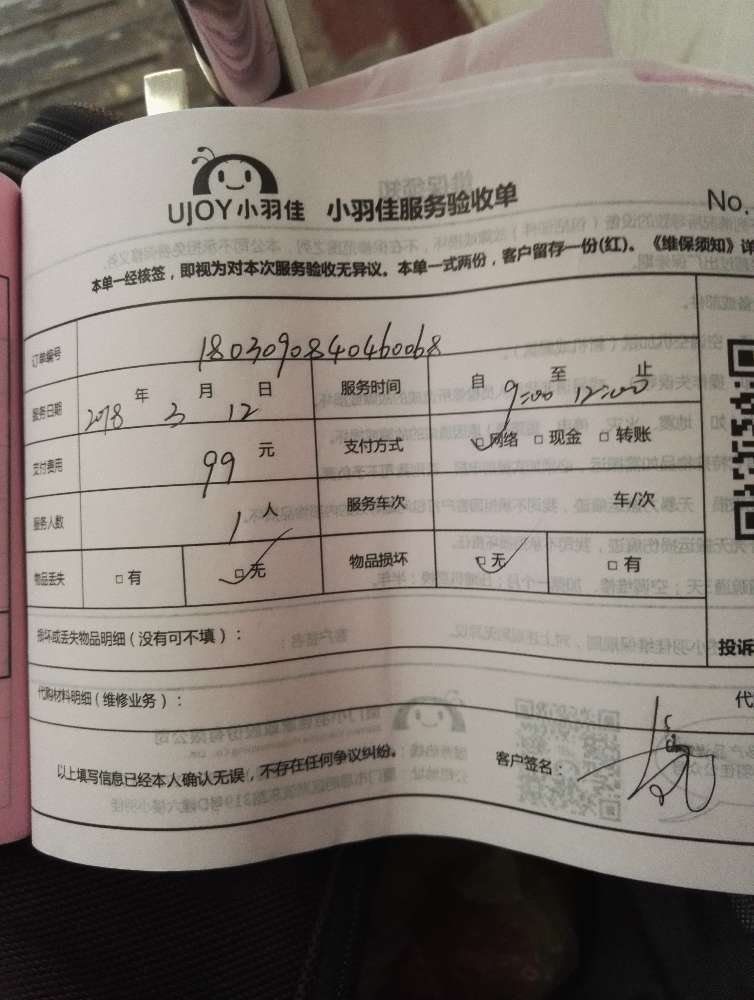 UJOY小羽佳 小羽佳服务验收单 No.
本单一经核签，即视为对本次服务验收无异议。本单一式两份，客户留存一份(红)。《维保须知》详
订单编号 1803090840460068
服务日期 2018 年 3 月 12 日 服务时间 自 9:00 至 12:00 止
支付费用 99 元 支付方式 □网络 □现金 □转账
服务人数 1 人 服务车次 车/次
物品丢失 □有 □无 物品损坏 □无 □有
损坏或丢失物品明细（没有可不填）： 投诉
代购材料明细（维修业务）： 代
以上填写信息已经本人确认无误，不存在任何争议纠纷。 客户签名：